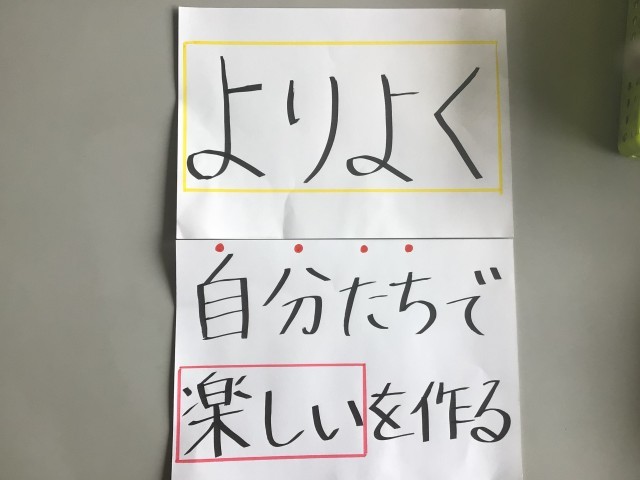 よりよく
自分たちで
楽しいを作る